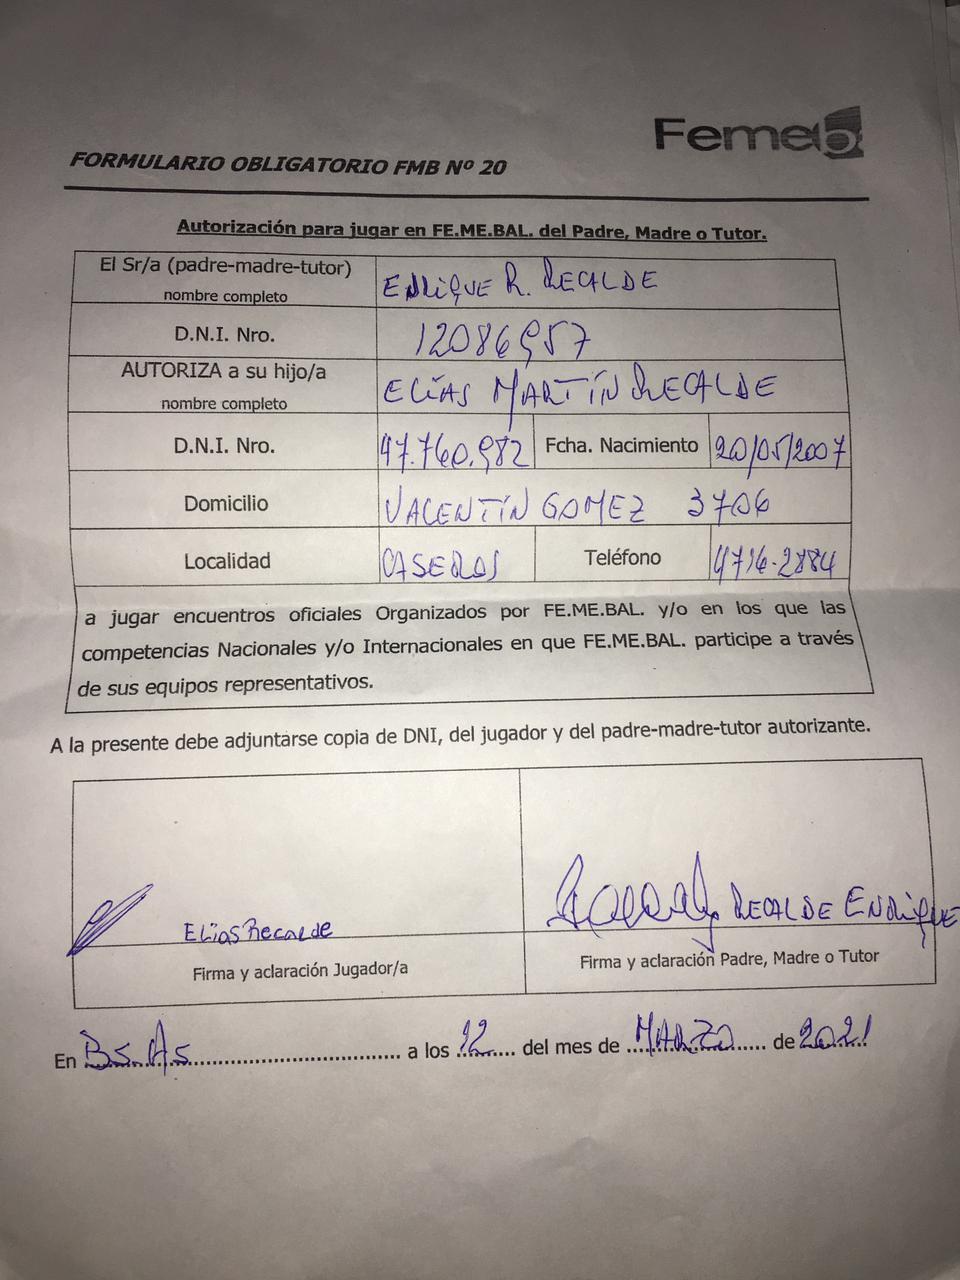 Femeb
FORMULARIO OBLIGATORIO FMB Nº 20
Autorización para jugar en FE.ME.BAL. del Padre, Madre o Tutor.
El Sr/a (padre-madre-tutor) nombre completo ENRIQUE R. RECALDE
D.N.I. Nro. 12086957
AUTORIZA a su hijo/a nombre completo ELÍAS MARTÍN RECALDE
D.N.I. Nro. 47.760.982 Fcha. Nacimiento 20/05/2007
Domicilio VALENTÍN GOMEZ 3706
Localidad CASEROS Teléfono 4716-2884
a jugar encuentros oficiales Organizados por FE.ME.BAL. y/o en los que las
competencias Nacionales y/o Internacionales en que FE.ME.BAL. participe a través
de sus equipos representativos.
A la presente debe adjuntarse copia de DNI, del jugador y del padre-madre-tutor autorizante.
Elias Recalde RECALDE ENRIQUE
Firma y aclaración Jugador/a Firma y aclaración Padre, Madre o Tutor
En Bs. As. a los 12 del mes de MARZO de 2021